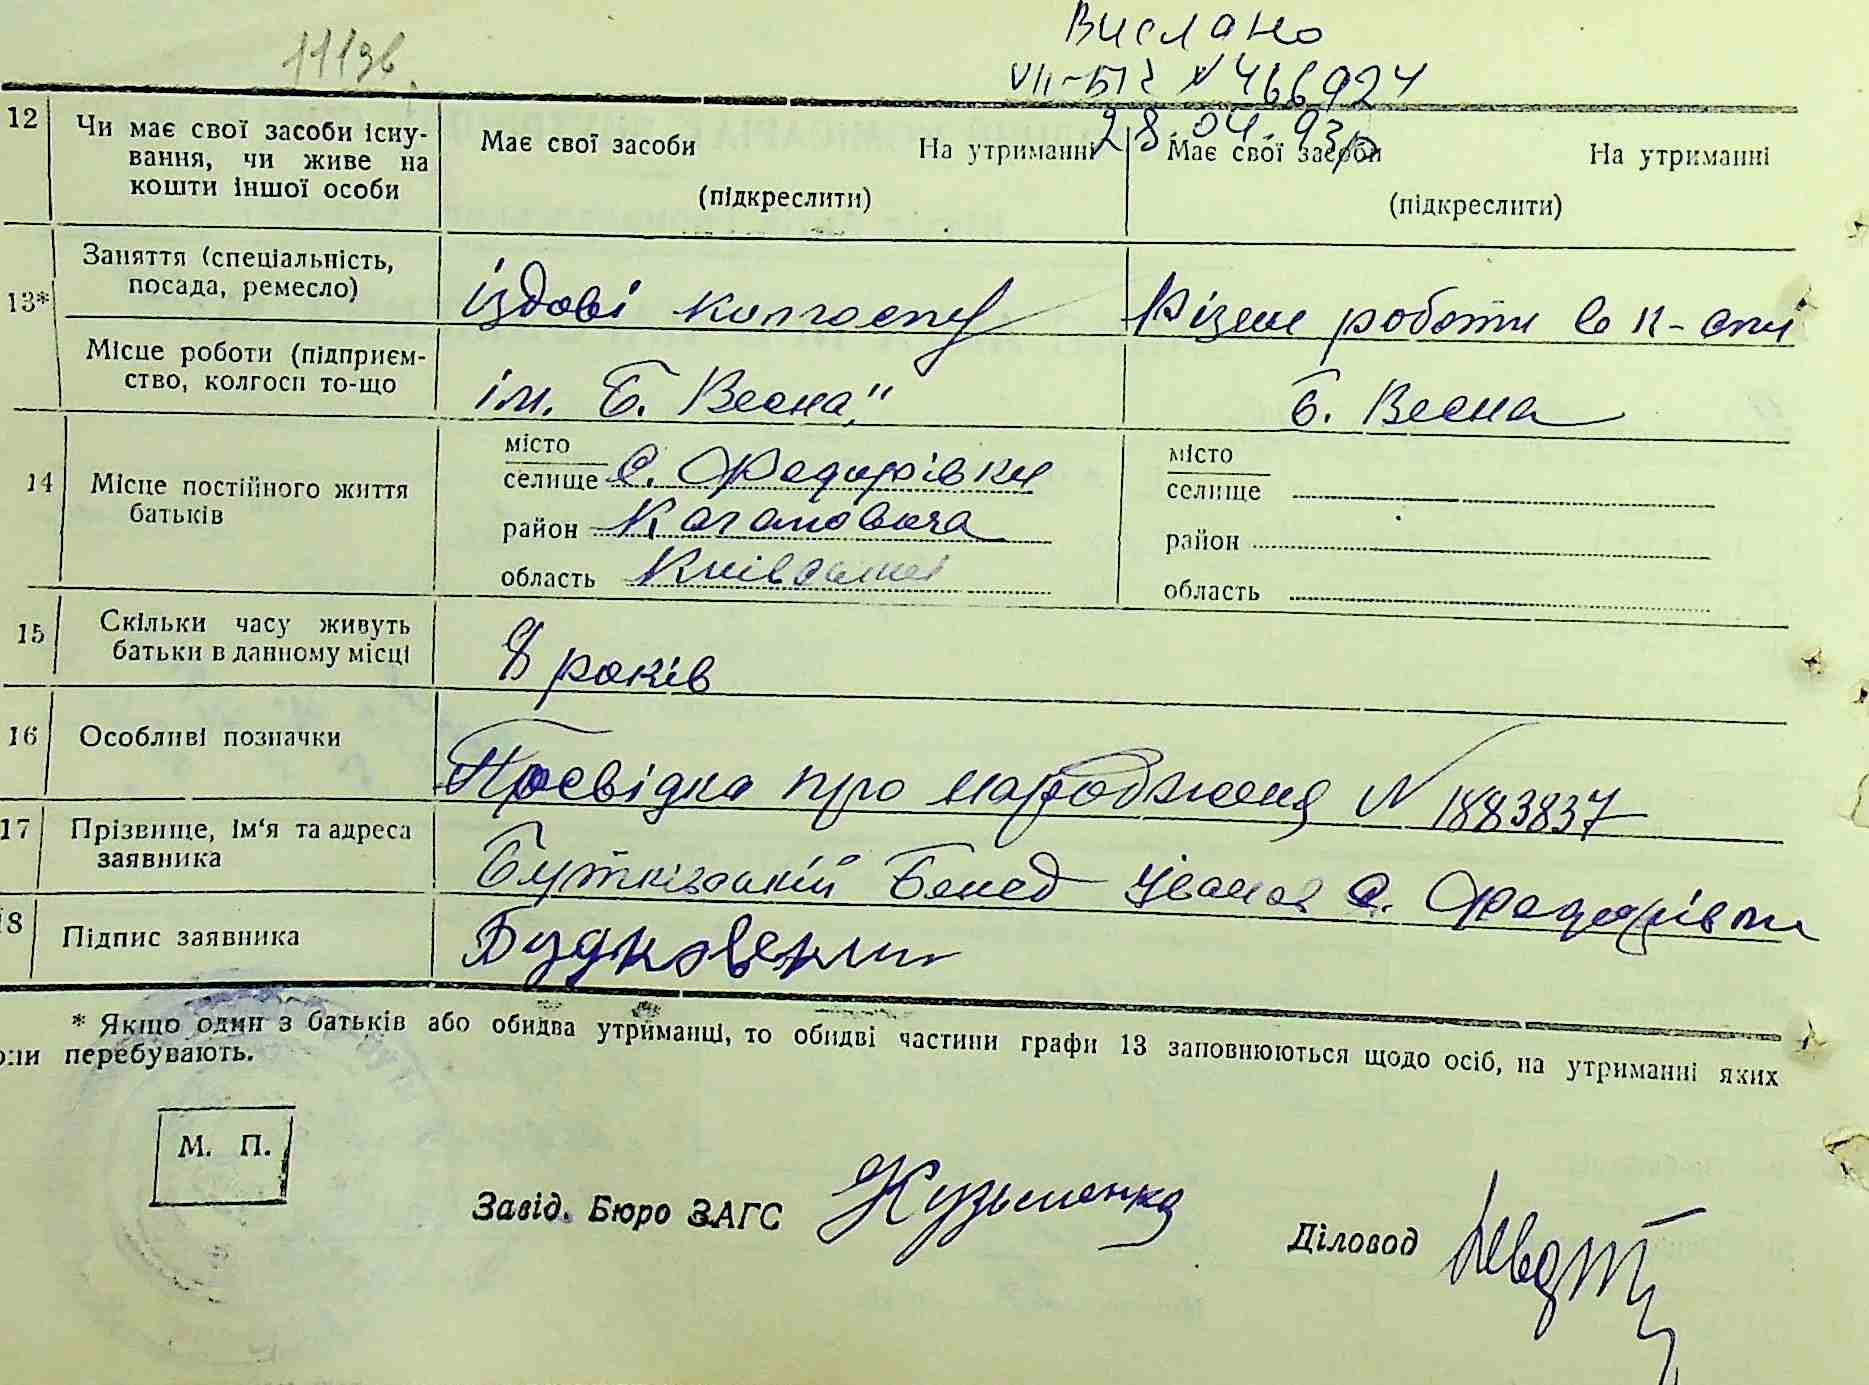 Вислано
VII-БК № 466924
28.04.93р
12 Чи має свої засоби існу-
вання, чи живе на
кошти іншої особи
Має свої засоби На утриманні
(підкреслити)
Має свої засоби На утриманні
(підкреслити)
13* Заняття (спеціальність,
посада, ремесло)
їздові колгоспу
Різни роботи в к-спі
Місце роботи (підприєм-
ство, колгосп то-що
ім. Б. Весна"
Б. Весна
14 Місце постійного життя
батьків
місто
селище с. Федорівки
район Кагановича
область Київської
місто
селище
район
область
15 Скільки часу живуть
батьки в данному місці
8 років
16 Особливі позначки
Посвідка про народження N 1883837
17 Прізвище, ім'я та адреса
заявника
Бутківський Бенед Іванов с. Федорівки
18 Підпис заявника
* Якщо один з батьків або обидва утриманці, то обидві частини графи 13 заповнюються щодо осіб, на утриманні яких
вони перебувають.
М. П.
Завід. Бюро ЗАГС Кузьменко
Діловод